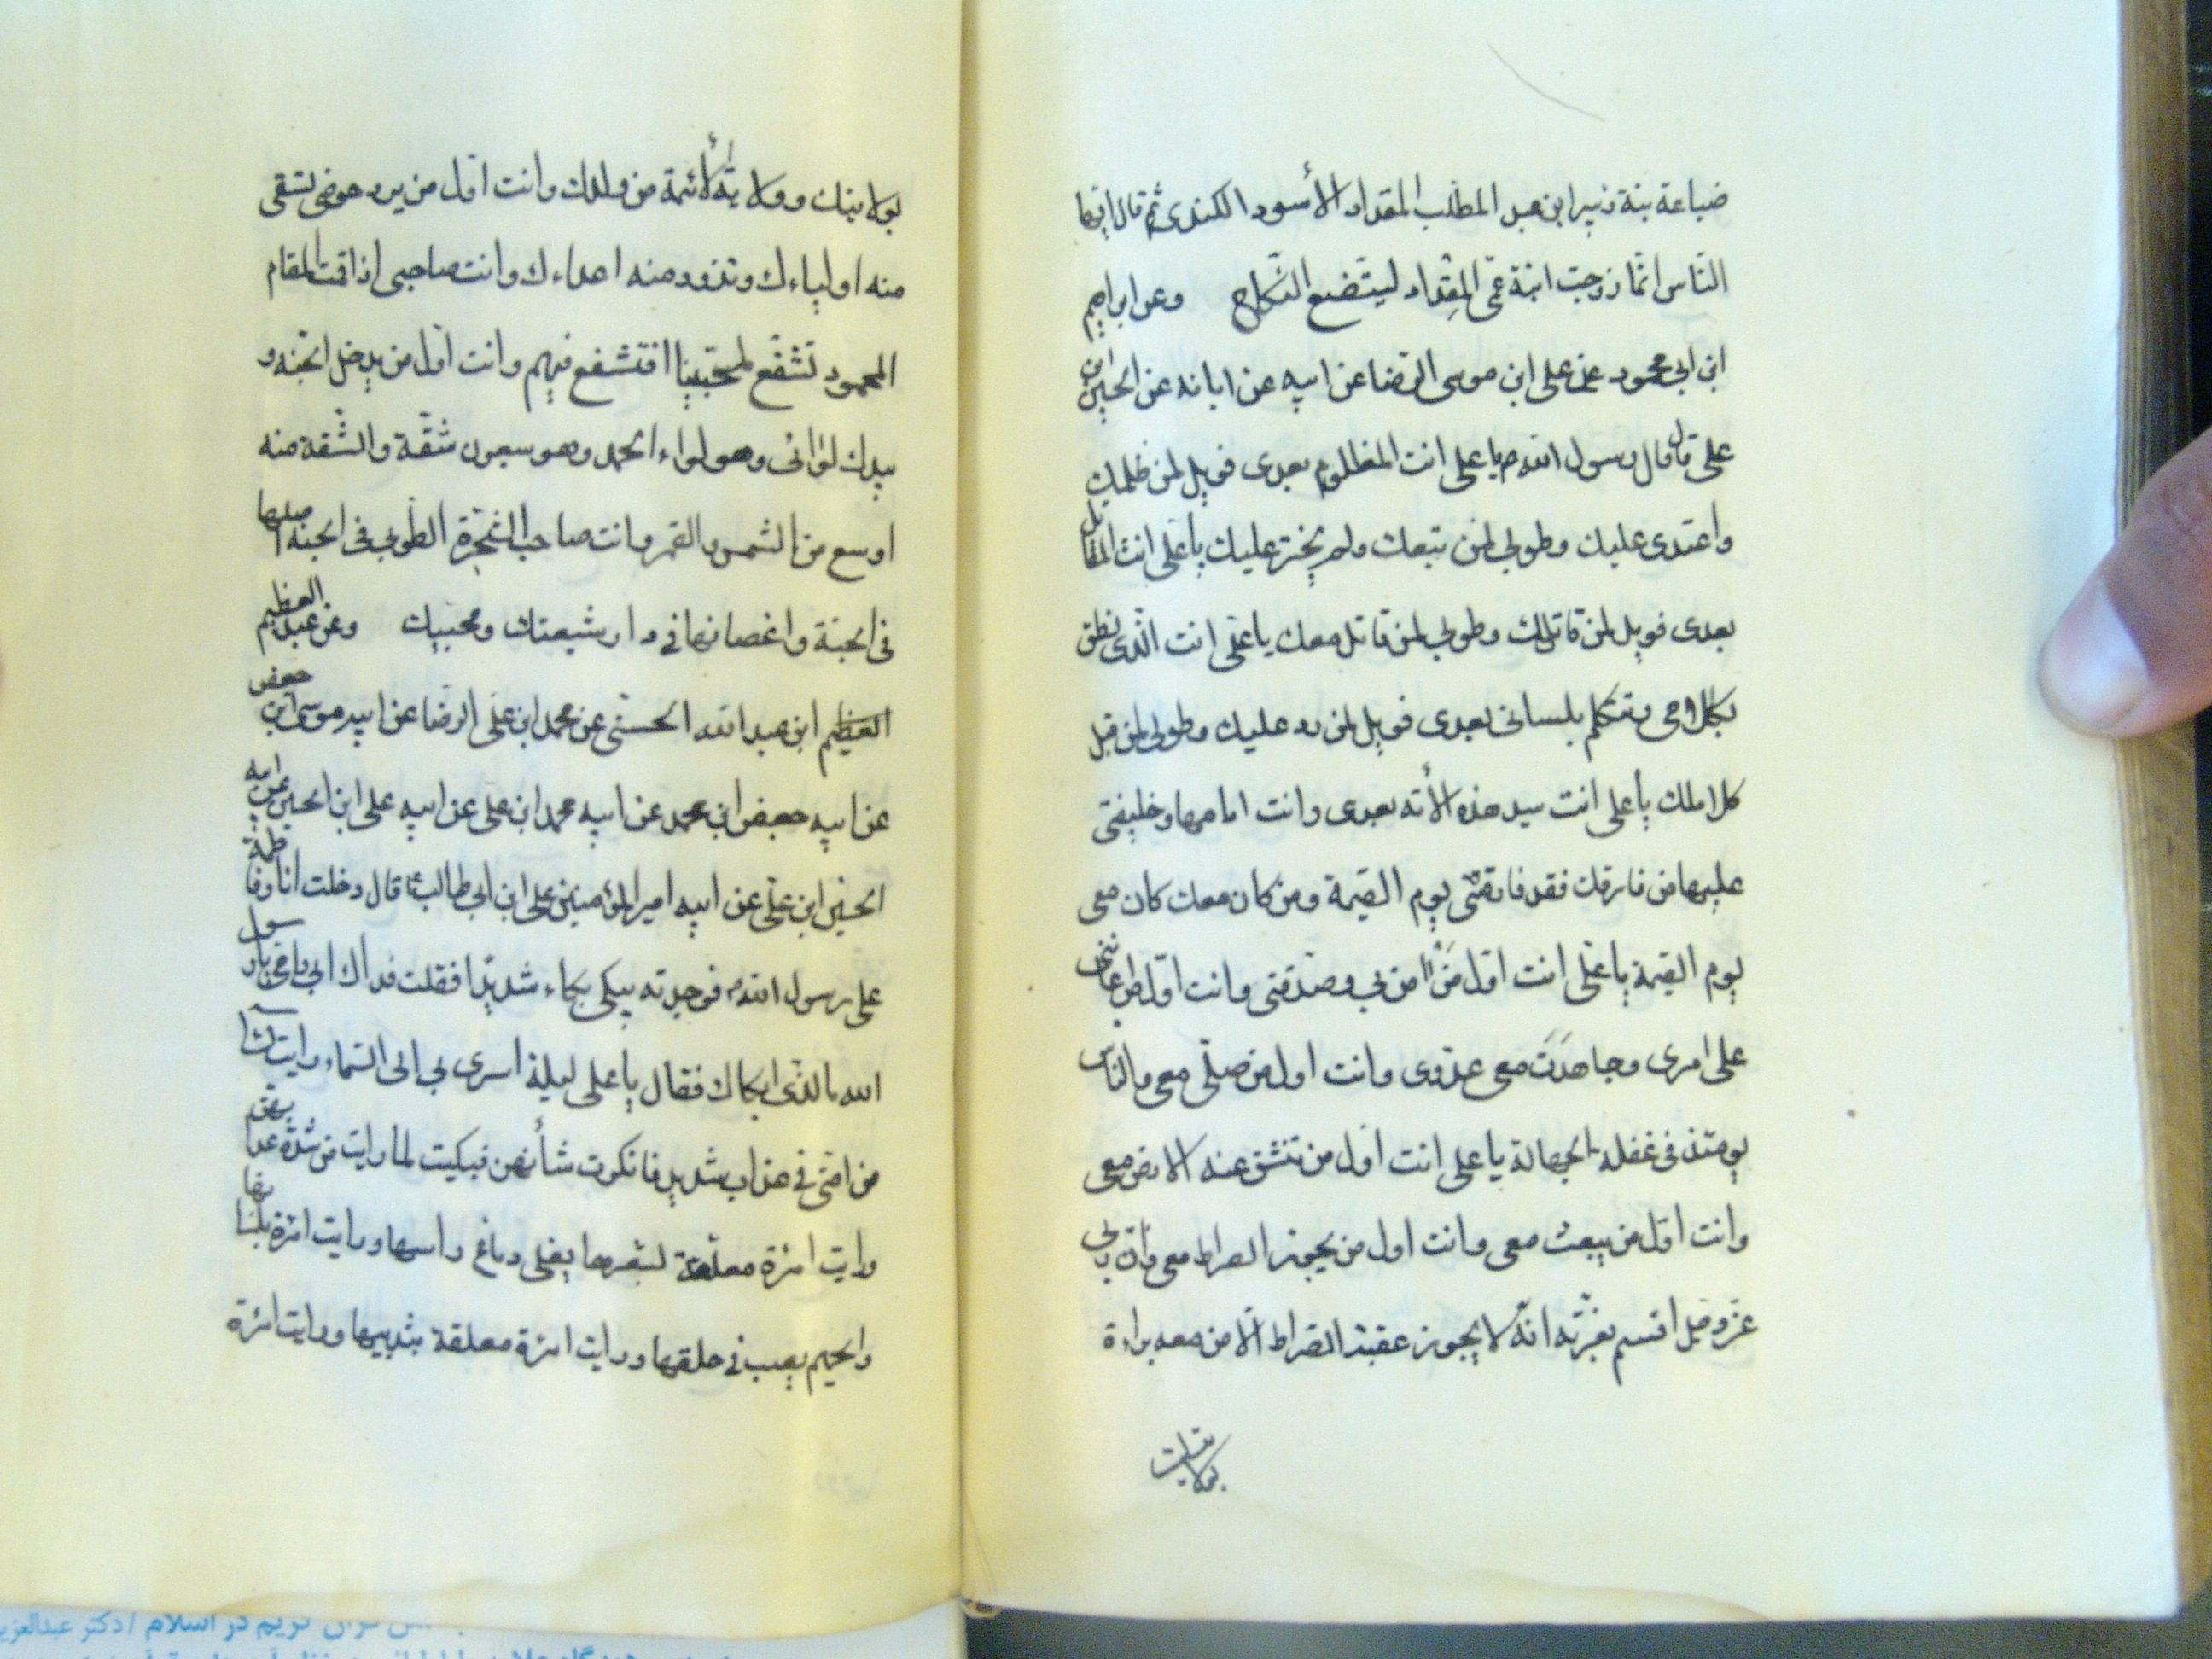 ضباعة بنة زبير ابن عبد المطلب المقداد الأسود الكندى ثم قال ايها
الناس انما زوجت ابنة عمى المقداد ليتضع النكاح وعن ابراهيم
ابن ابى محمود عن على ابن موسى الرضا عن ابيه عن ابائه عن الحسين ابن
على قال قال رسول الله ص يا على انت المظلوم بعدى فويل لمن ظلمك
واعتدى عليك وطوبى لمن تبعك ولم يختر عليك يا على انت المقاتل
بعدى فويل لمن قاتلك وطوبى لمن قاتل معك يا على انت الذى تنطق
بكلامى وتتكلم بلسانى بعدى فويل لمن رد عليك وطوبى لمن قبل
كلامك يا على انت سيد هذه الأمه بعدى وانت امامها وخليفتى
عليها من فارقك فقد فارقنى يوم القيمة ومن كان معك كان معى
يوم القيمة يا على انت اول من امن بى وصدقنى وانت اول من اعاننى
على امرى وجاهدت معى عدوى وانت اول من صلى معى والناس
يومئذ فى غفلة الجهالة يا على انت اول من تنشق عنه الارض معى
وانت اول من يبعث معى وانت اول من يجوز الصراط معى وان ربى
عز وجل اقسم بعزته انه لا يجوز عقبة الصراط الا من معه براءة
بولايتك
بولايتك وولاية الأئمة من ولدك وانت اول من يرد حوضى تسقى
منه اولياءك وتذود منه اعداءك وانت صاحبى اذا قمت المقام
المحمود تشفع لمحبينا افتشفع فيهم وانت اول من يدخل الجنه و
بيدك لوائى وهو لواء الحمد وهو سبعون شقة والشقة منه
اوسع من الشمس والقمر وانت صاحب الشجرة الطوبى فى الجنه اصلها
فى الجنة واغصانها فى دار شيعتك ومحبيك وعن عبد العظيم
العظيم ابن عبد الله الحسنى عن محمد ابن على الرضا عن ابيه موسى ابن جعفر
عن ابيه جعفر ابن محمد عن ابيه محمد ابن على عن ابيه على ابن الحسين عن ابيه
الحسين ابن على عن ابيه امير المؤمنين على ابن ابى طالب ع قال دخلت انا وفاطمة
على رسول الله ص فوجدته يبكى بكاء شديدا فقلت فداك ابى وامى يا رسول
الله ما الذى ابكاك فقال يا على ليلة اسرى بى الى السماء رايت نساء
من امتى فى عذاب شديد فانكرت شأنهن فبكيت لما رايت من شدة عذابهن
ورايت امرءة معلقة بشعرها يغلى دماغ راسها ورايت امرءة بلسانها
والحميم يصب فى حلقها ورايت امرءة معلقة بثدييها ورايت امرءة